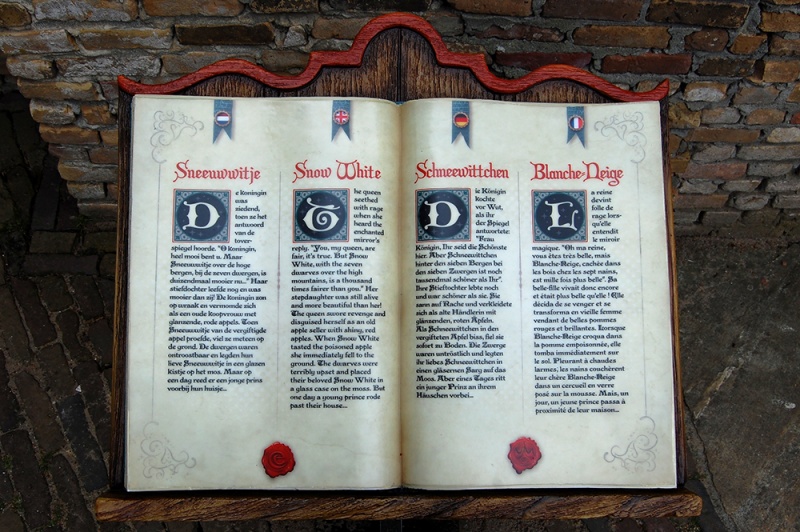 Sneeuwwitje
De Koningin
was
ziedend,
toen ze het
antwoord
van de
tover-
spiegel hoorde. "O Koningin,
heel mooi bent u. Maar
Sneeuwwitje over de hoge
bergen, bij de zeven dwergen, is
duizendmaal mooier nu..." Haar
stiefdochter leefde nog en was
mooier dan zij! De Koningin zon
op wraak en vermomde zich
als een oude koopvrouw met
glanzende, rode appels. Toen
Sneeuwwitje van de vergiftigde
appel proefde, viel ze meteen op
de grond. De dwergen waren
ontroostbaar en legden hun
lieve Sneeuwwitje in een glazen
kistje op het mos. Maar op
een dag reed er een jonge prins
voorbij hun huisje...
Snow White
The queen
seethed
with rage
when she
heard the
enchanted
mirror's
reply. "You, my queen, are
fair, it's true. But Snow
White, with the seven
dwarves over the high
mountains, is a thousand
times fairer than you." Her
stepdaughter was still alive
and more beautiful than her!
The queen swore revenge and
disguised herself as an old
apple seller with shiny, red
apples. When Snow White
tasted the poisoned apple
she immediately fell to the
ground. The dwarves were
terribly upset and placed
their beloved Snow White in
a glass case on the moss. But
one day a young prince rode
past their house...
Schneewittchen
Die Königin
kochte
vor Wut,
als ihr
der Spiegel
antwortete:
"Frau
Königin, Ihr seid die Schönste
hier. Aber Schneewittchen
hinter den sieben Bergen bei
den sieben Zwergen ist noch
tausendmal schöner als Ihr".
Ihre Stieftochter lebte noch
und war schöner als sie. Sie
sann auf Rache und verkleidete
sich als alte Händlerin mit
glänzenden, roten Äpfeln.
Als Schneewittchen in den
vergifteten Apfel biss, fiel sie
sofort zu Boden. Die Zwerge
waren untröstlich und legten
ihr liebes Schneewittchen in
einen gläsernen Sarg auf das
Moos. Aber eines Tages ritt
ein junger Prinz an ihrem
Häuschen vorbei...
Blanche-Neige
La reine
devint
folle de
rage lors-
qu'elle
entendit
le miroir
magique. "Oh ma reine,
vous êtes très belle, mais
Blanche-Neige, cachée dans
les bois chez les sept nains,
est mille fois plus belle". Sa
belle-fille vivait donc encore
et était plus belle qu'elle ! Elle
décida de se venger et se
transforma en vieille femme
vendant de belles pommes
rouges et brillantes. Lorsque
Blanche-Neige croqua dans
la pomme empoisonnée, elle
tomba immédiatement sur
le sol. Pleurant à chaudes
larmes, les nains couchèrent
leur chère Blanche-Neige
dans un cercueil en verre
posé sur la mousse. Mais, un
jour, un jeune prince passa à
proximité de leur maison...